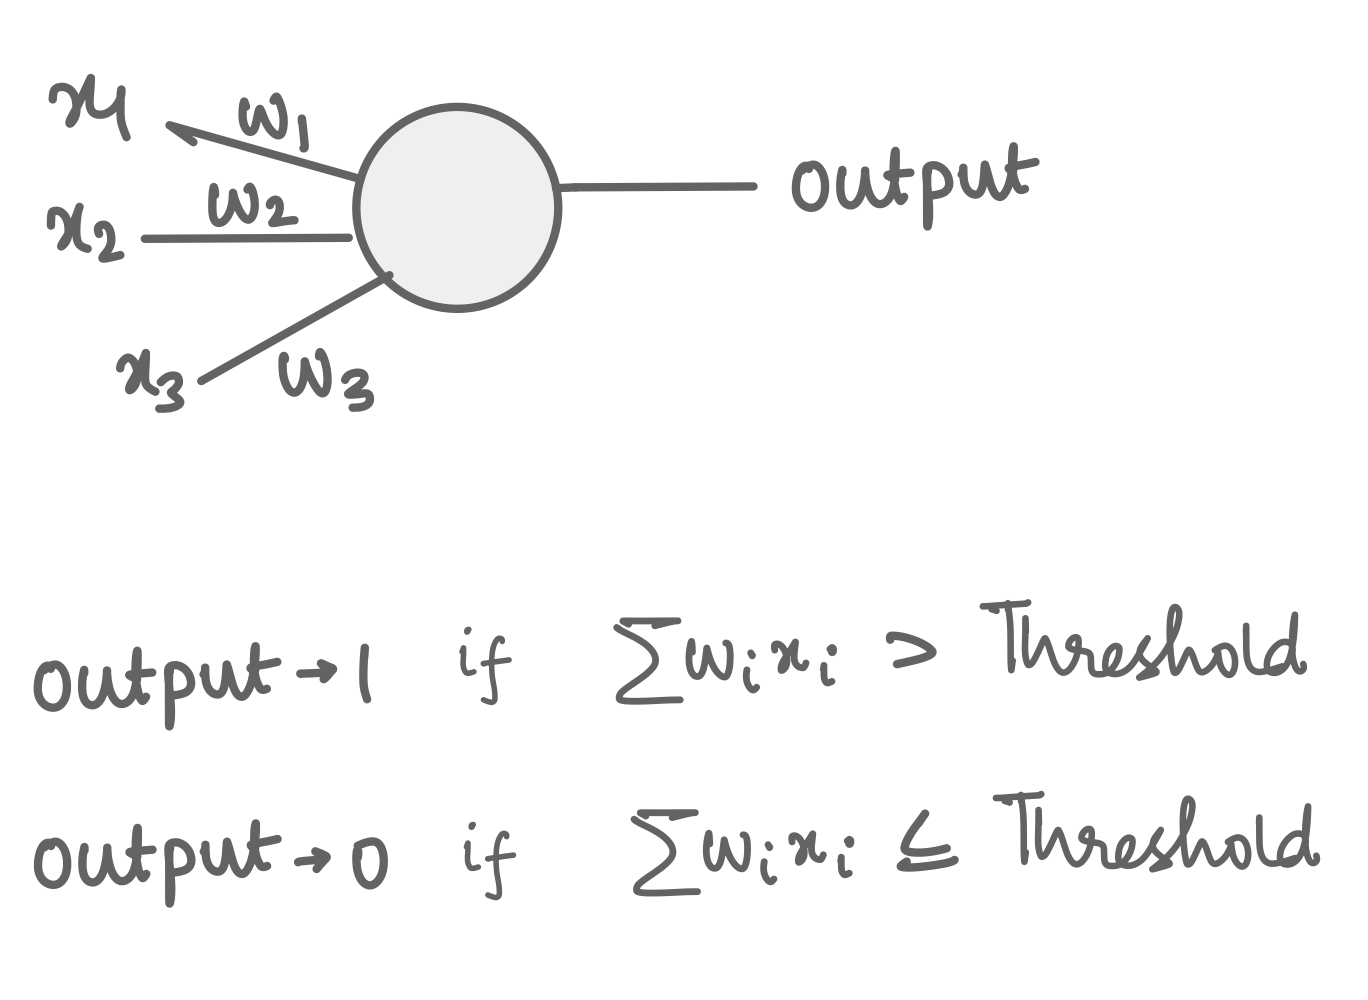 x1 w1
x2 w2 output
x3 w3
output → 1 if ∑ wi xi > Threshold
output → 0 if ∑ wi xi ≤ Threshold